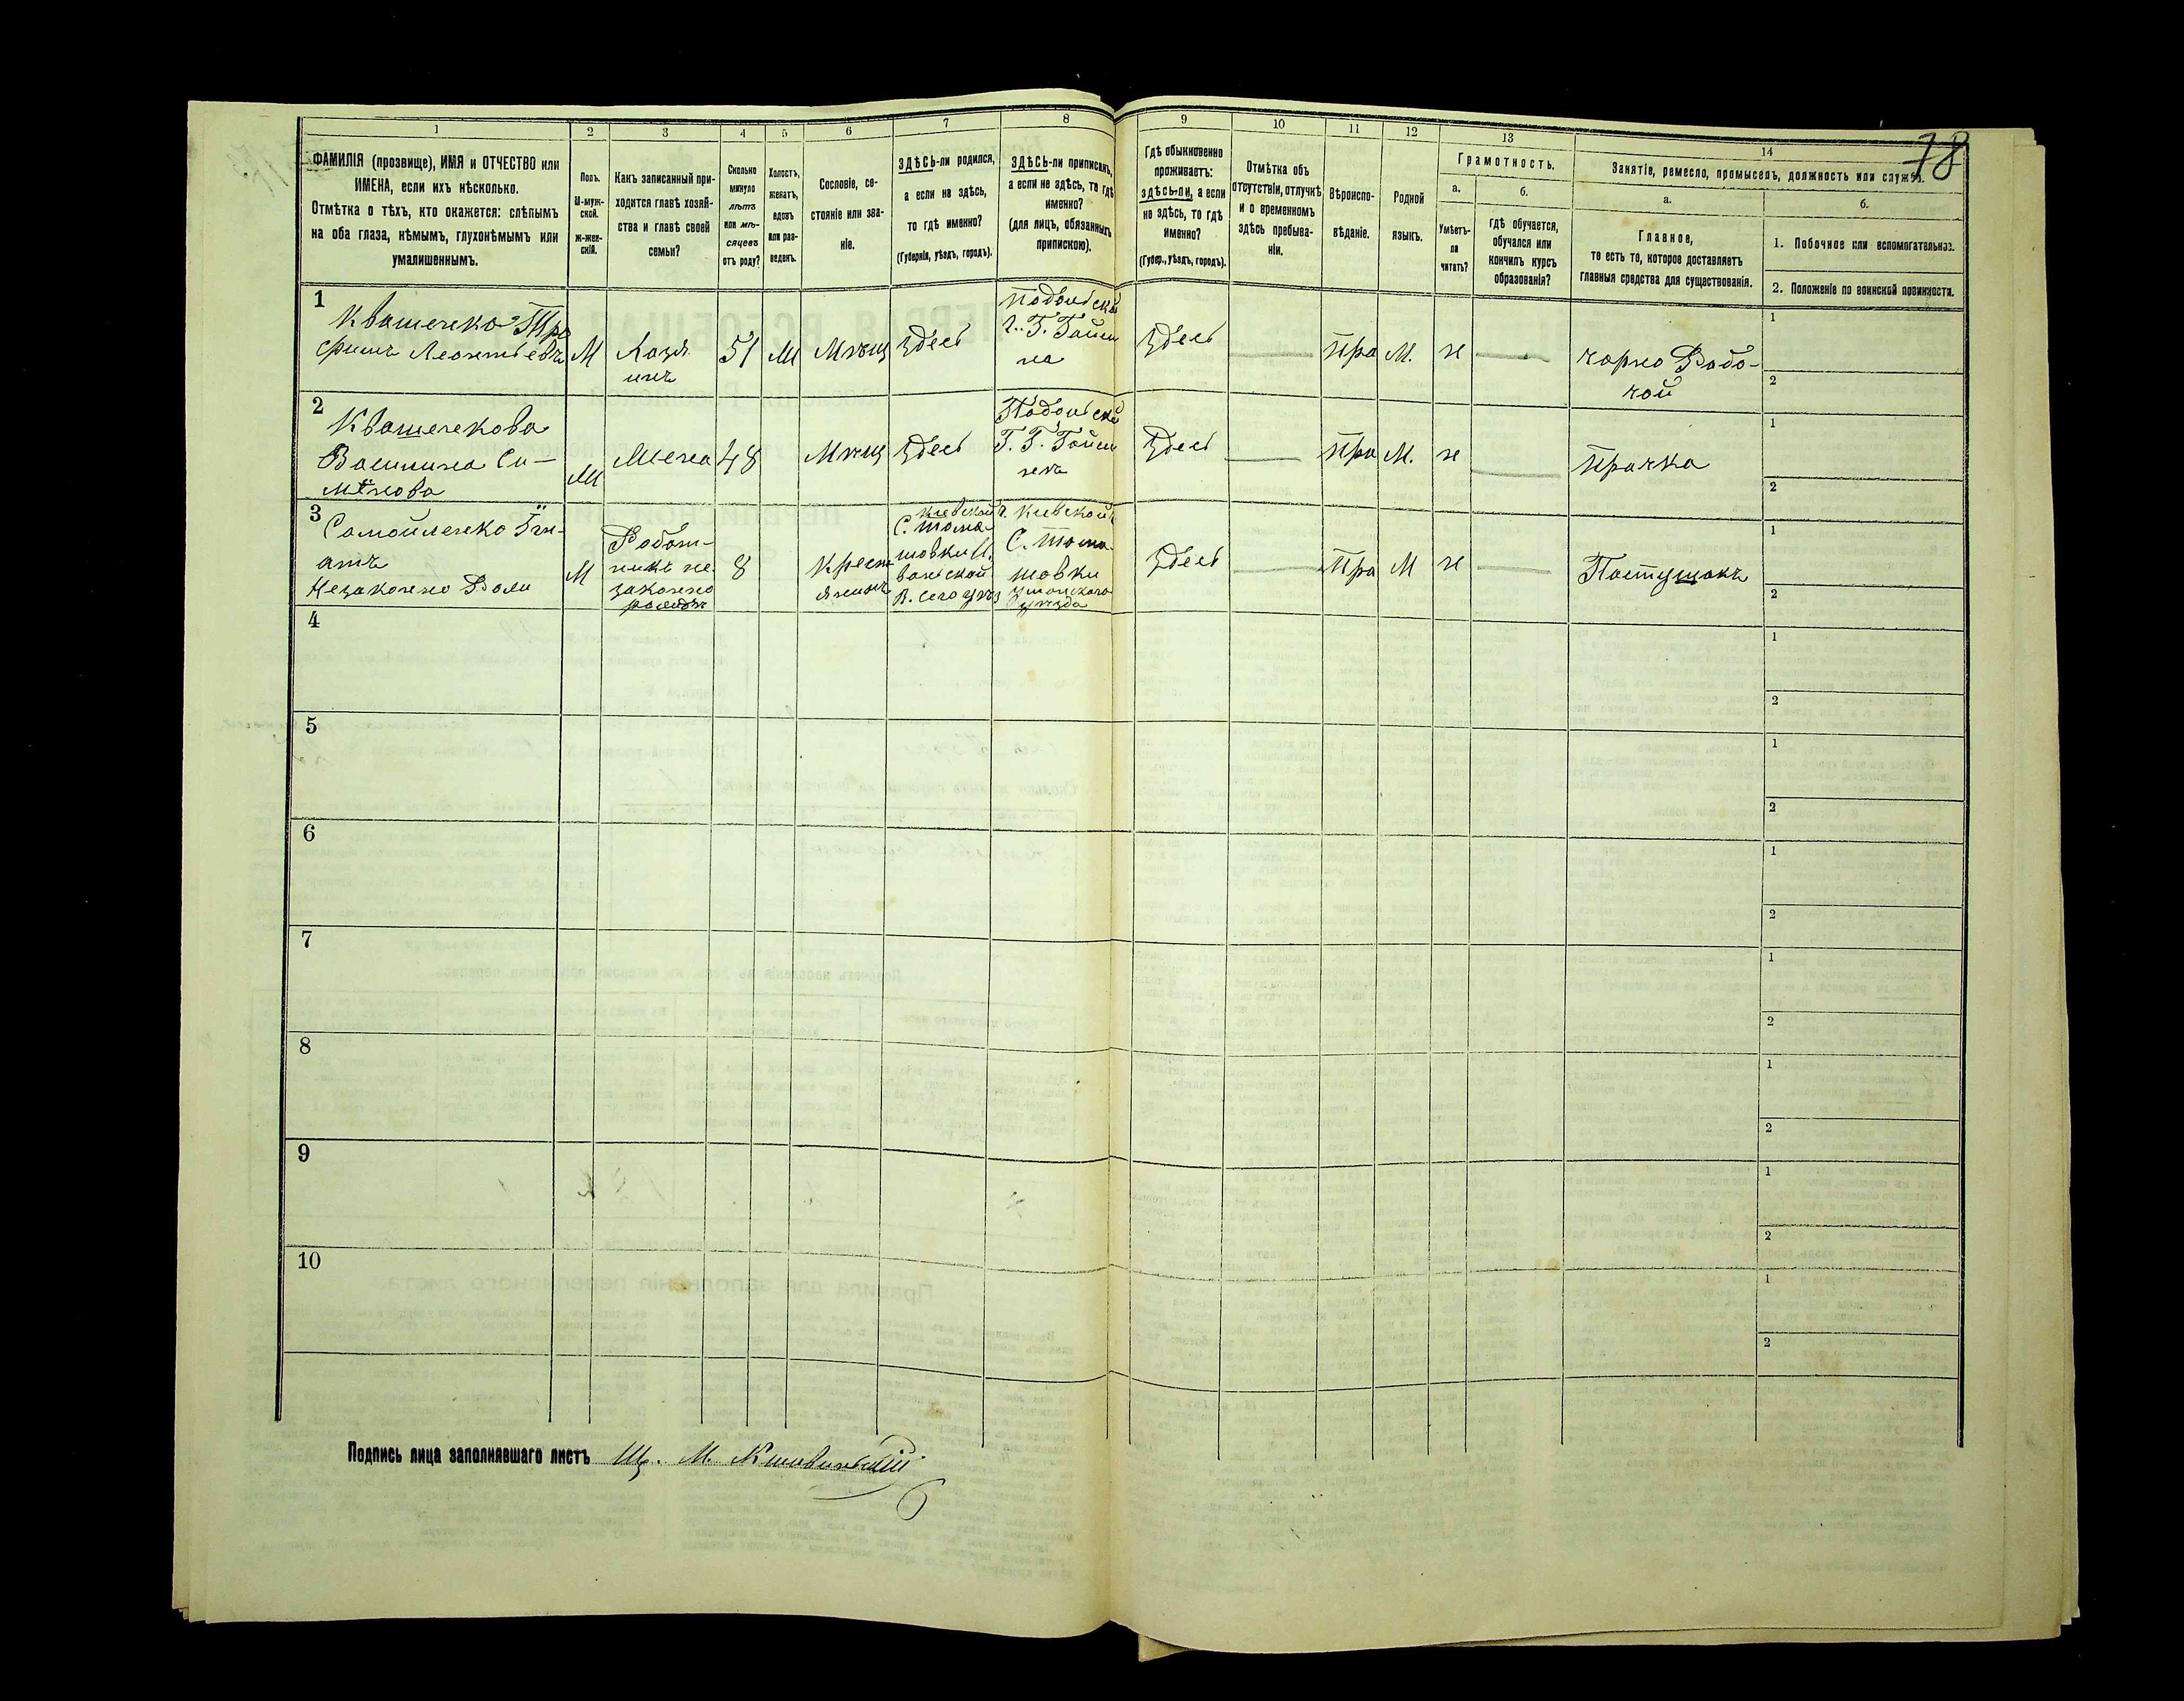 78
1
2
3
4
5
6
7
8
9
10
11
12
13
14
ФАМИЛІЯ (прозвище), ИМЯ и ОТЧЕСТВО или
ИМЕНА, если ихъ нѣсколько.
Отмѣтка о тѣхъ, кто окажется: слѣпымъ
на оба глаза, нѣмымъ, глухонѣмымъ или
умалишеннымъ.
Полъ.
М-муж-
ской.
Ж-жен-
скій.
Какъ записанный при-
ходится главѣ хозяй-
ства и главѣ своей
семьи?
Сколько
минуло
лѣтъ
или мѣ-
сяцевъ
отъ роду?
Холостъ,
женатъ,
вдовъ
или раз-
веденъ.
Сословіе, со-
стояніе или зва-
ніе.
ЗДѢСЬ-ли родился,
а если не здѣсь,
то гдѣ именно?
(Губернія, уѣздъ, городъ).
ЗДѢСЬ-ли приписанъ,
а если не здѣсь, то гдѣ
именно?
(для лицъ, обязанныхъ
припискою).
Гдѣ обыкновенно
проживаетъ:
здѣсь-ли, а если
не здѣсь, то гдѣ
именно?
(Губер., уѣздъ, городъ).
Отмѣтка объ
отсутствіи, отлучкѣ
и о временномъ
здѣсь пребыва-
ніи.
Вѣроиспо-
вѣданіе.
Родной
языкъ.
Грамотность.
а.
Умѣетъ-
ли
читать?
б.
Гдѣ обучается,
обучался или
кончилъ курсъ
образованія?
Занятіе, ремесло, промыселъ, должность или служба.
а.
Главное,
то есть то, которое доставляетъ
главныя средства для существованія.
б.
1. Побочное или вспомогательное.
2. Положеніе по воинской повинности.
1
Квашенко Тро
фимъ Леонтьевъ
М
Хозя
инъ
51
М
Мѣщ
Здесь
Подольской
Г. Г. Гайси
на
Здесь
Пра
М.
не
чорно Рабо-
чой
1
2
2
Квашенкова
Василина Си-
М
Жена
48
Мѣщ
Здесь
Подольской
Г. Г. Гайси
Здесь
Пра
М.
не
Прачка
1
2
3
Самойленко Гн-
атъ
Незаконно
М
Работ-
никъ не
законно
8
Крест
янинъ
Киевской
С. Тома
шовки
Киевской
С. Тома
шовки
Уманского
уѣзда
Здесь
Пра
М
не
Пастушокъ
1
2
4
1
2
5
1
2
6
1
2
7
1
2
8
1
2
9
1
2
10
1
2
Подпись лица заполнявшаго листъ